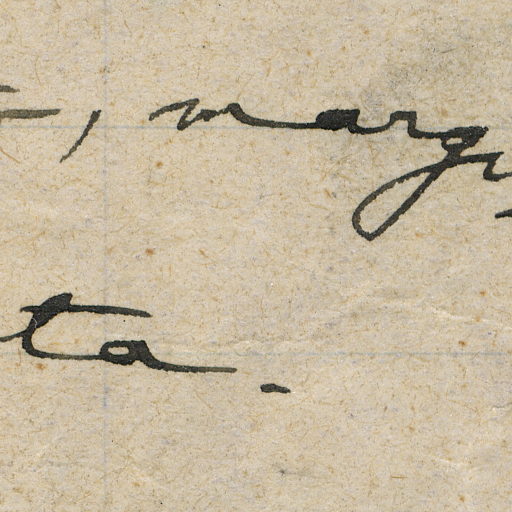 , marg
ta.